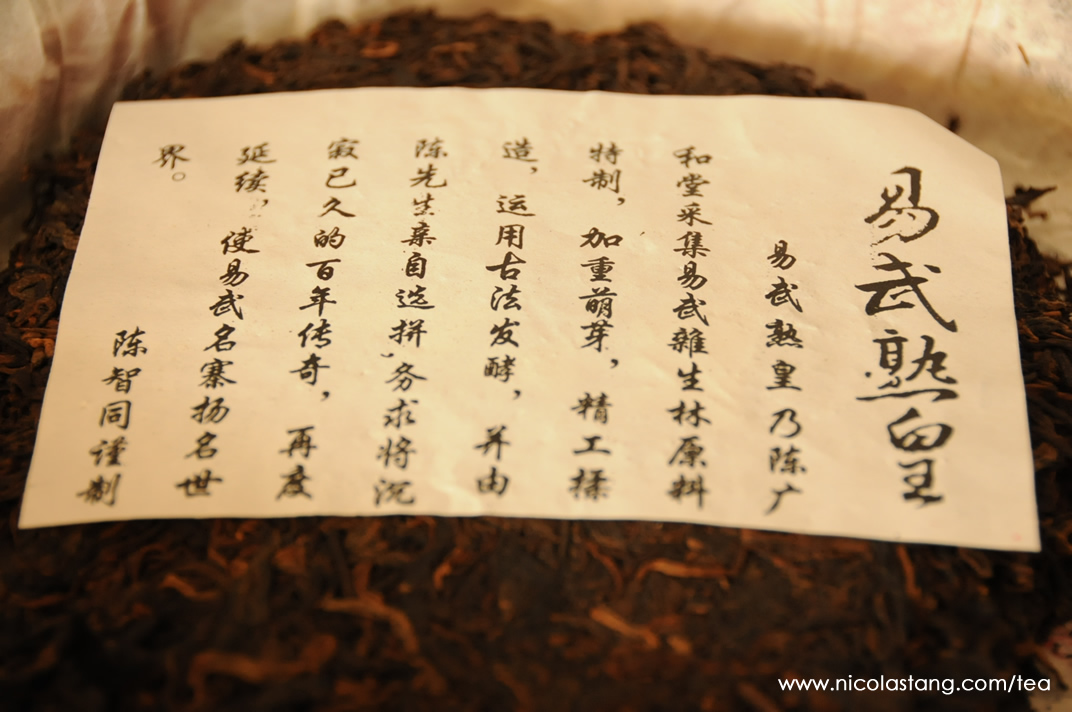 易武熟皇
易武熟皇乃陈广
和堂采集易武雜生林原料
特制，加重萌芽，精工揉
造，运用古法发酵，并由
陈先生亲自选拼，务求将沉
寂已久的百年传奇，再度
延续，使易武名寨扬名世
界。
陈智同谨制
www.nicolastang.com/tea